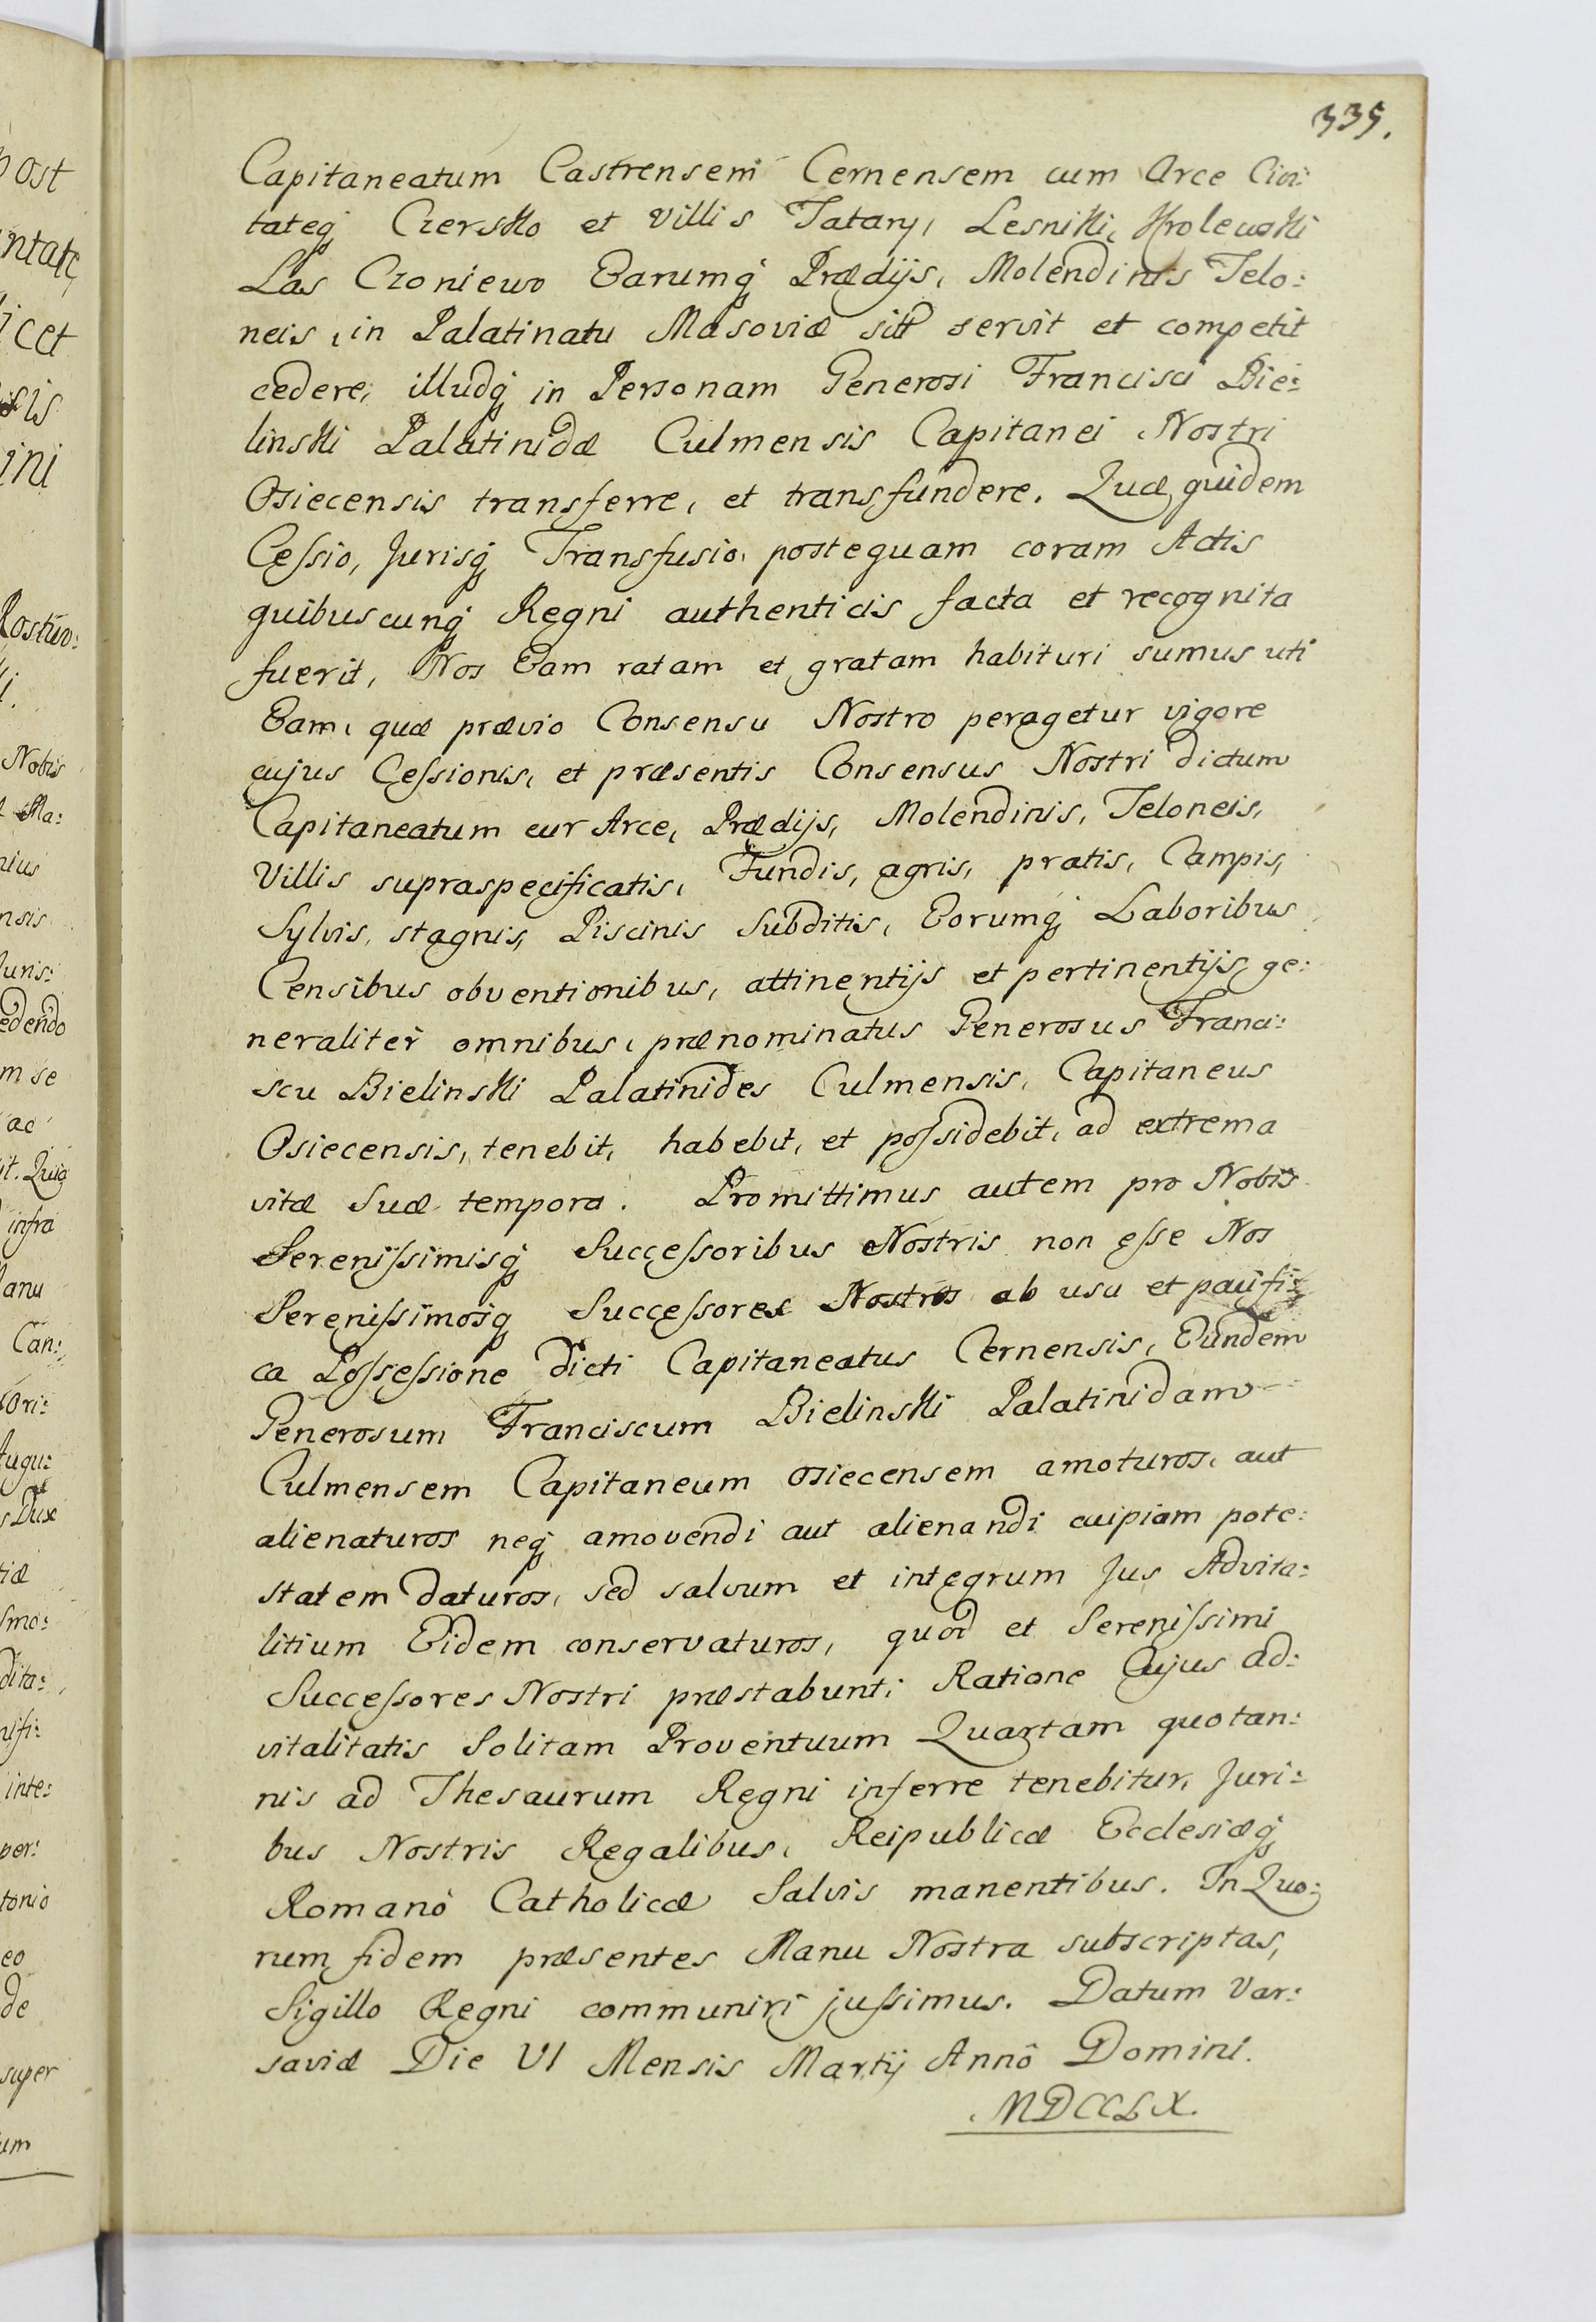 335.
Capitaneatum Castrensem Cernensem cum Arce Civi:
tateq́ Czersko et villis Tatary, Lesniki, Krolewski
Las Czoniewo Earumq́ Prædijs, Molendinis Telo:
neis, in Palatinatu Masoviæ sitt servit et competit
cedere, illudq́ in Personam Generosi Francisci Bie:
linski Palatinidæ Culmensis Capitanei Nostri
Osiecensis transferre, et transfundere. Quæ quidem
Ceſsio, Jurisq́ Transfusio, postequam coram Actis
quibuscunq́ Regni authenticis facta et recognita
fuerit, Nos Eam ratam et gratam habituri sumus uti
Eam, quæ prævio Consensu Nostro peragetur vigore
cujus Ceſsionis, et præsentis Consensus Nostri dictum
Capitaneatum cur Arce, Prædijs, Molendinis, Teloneis,
Villis supraspecificatis, Fundis, agris, pratis, Campis,
Sylvis, stagnis, Piscinis Subditis, Eorumq́ Laboribus
Censibus obventionibus, attinentijs et pertinentijs ge:
neraliter omnibus, prænominatus Generosus Franci:
scu Bielinski Palatinides Culmensis, Capitaneus
Osiecensis, tenebit, habebit, et poſsidebit, ad extrema
vitæ Suæ tempora. Promittimus autem pro Nobis
Sereniſsimisq́ Succeſsoribus Nostris non eſse Nos
Sereniſsimosq́ Succeſsores Nostros ab usu et paifi:
ca Poſseſsione dicti Capitaneatus Cernensis, Eundem
Generosum Franciscum Bielinski Palatinidam
Culmensem Capitaneum Osiecensem amoturos, aut
alienaturos neq́ amovendi aut alienandi cuipiam pote:
statem daturos, sed salvum et integrum Jus Advita:
litium Eidem conservaturos, quod et Sereniſsimi
Succeſsores Nostri præstabunt; Ratione Cujus ad:
vitalitatis Solitam Proventuum Quartam quotan:
nis ad Thesaurum Regni inferre tenebitur, Juri:
bus Nostris Regalibus, Reipublicæ Ecclesiæq́
Romanò Catholicæ Salvis manentibus. In Quo:
rum fidem præsentes Manu Nostra subscriptas,
Sigillo Regni communiri juſsimus. Datum Var:
saviæ Die VI Mensis Martij Annô Domini.
MDCCLX.